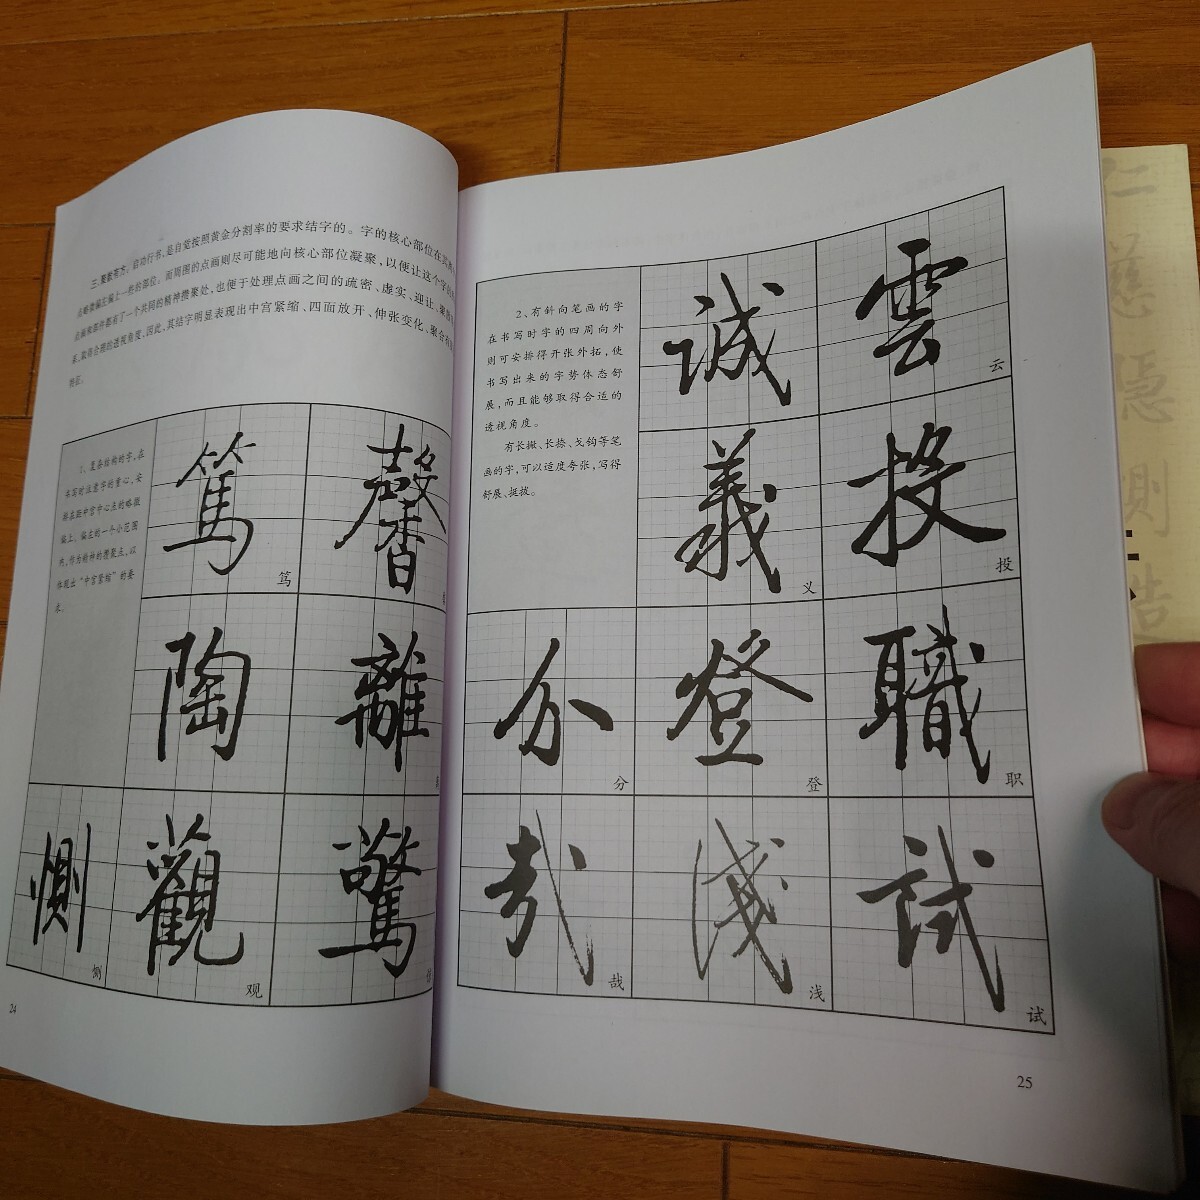 三、聚散有方：启功行书，是自觉按照黄金分割率的要求结字的。字的核心部位在
点略微偏左偏上一些的部位。而周围的点画则尽可能地向核心部位凝聚，以便让这个字的
有了一个共同的精神攒聚处，也便于处理点画之间的疏密、虚实、迎让、聚散
取得合理的透视角度。因此，其结字明显表现出中宫紧缩、四面放开、伸张变化、聚合有
特征。
1、复杂结构的字，在
书写时注意字的重心，安
排在距中宫中心点的略微
偏上、偏左的一个小范围
内，作为精神的攒聚点，以
体现出“中宫紧缩”的要
求。
馨
篤
笃
離
陶
驚
觀
观
惻
恻
24
2、有斜向笔画的字
在书写时字的四周向外
则可安排得开张外拓，使
书写出来的字势体态舒
展，而且能够取得合适的
透视角度。
有长撇、长捺、戈钩等笔
画的字，可以适度夸张，写得
舒展、挺拔。
雲
云
誠
投
投
義
义
職
职
登
登
分
分
試
试
淺
浅
哉
哉
25
仁
慈
隱
惻
造